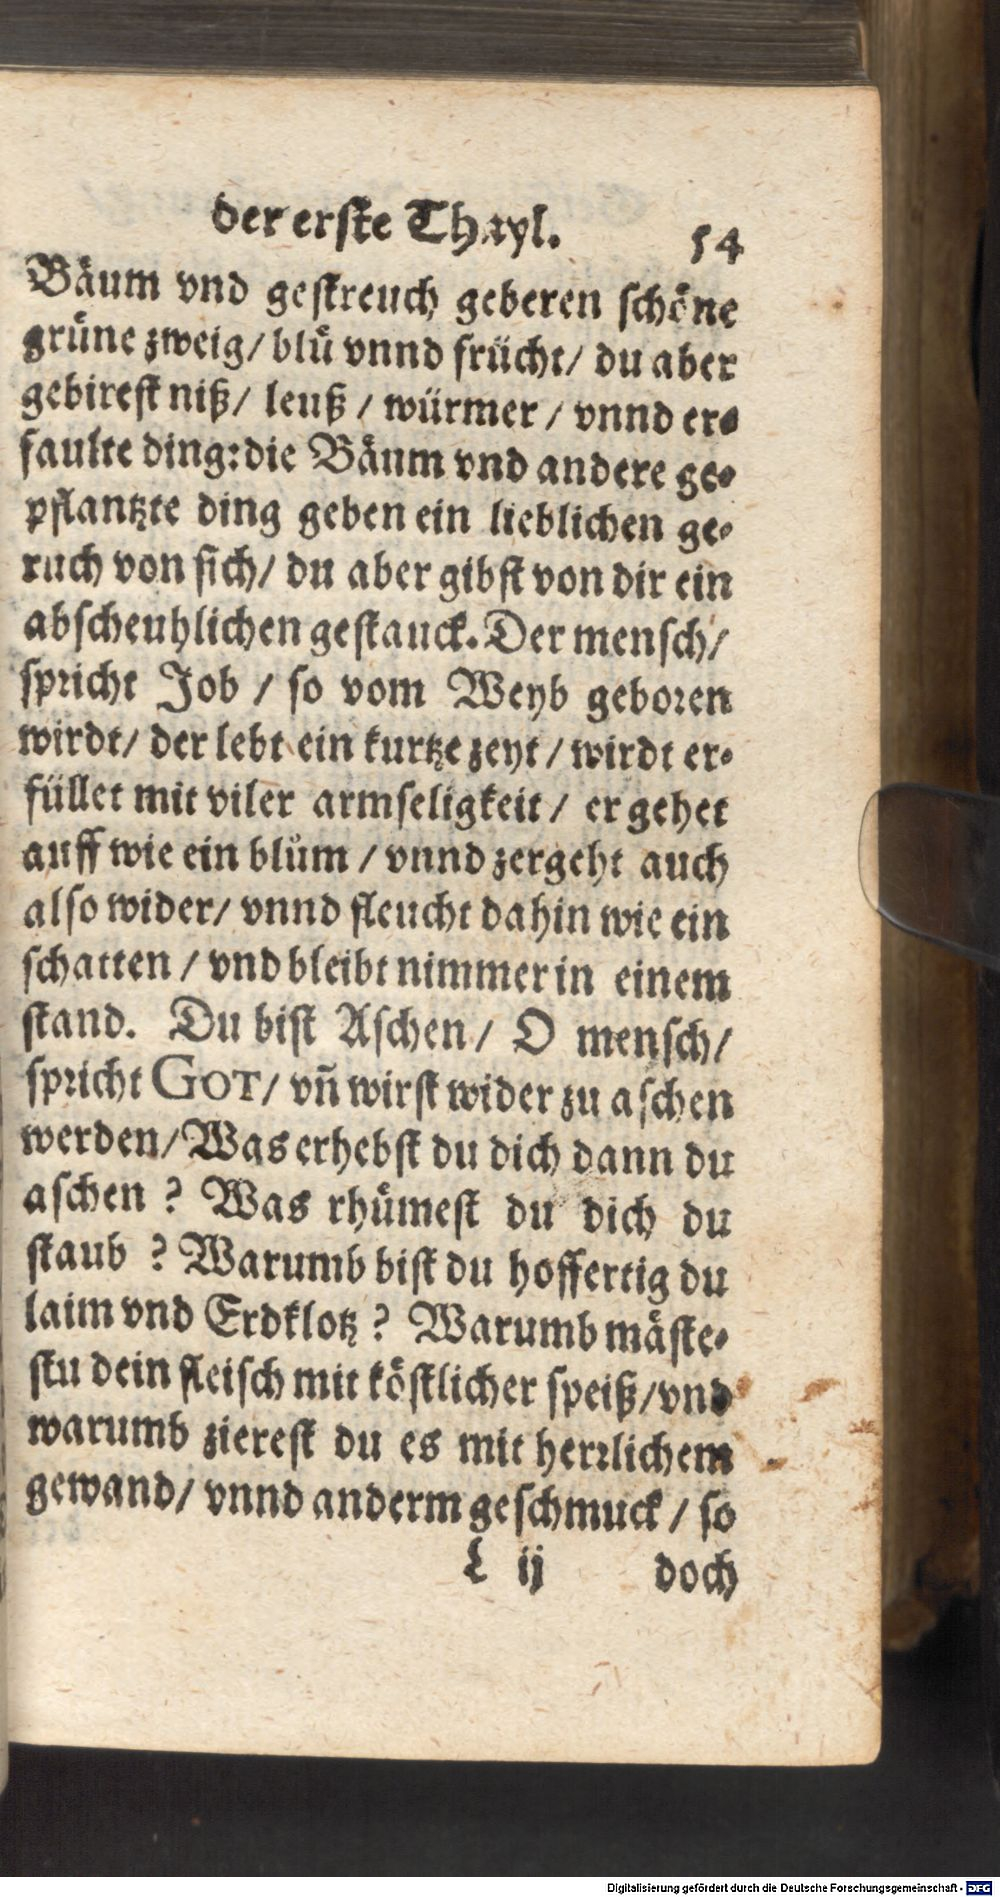 der erste Thayl. 54
Bäum vnd gestreuch geberen schöne
grüne zweig/ blů vnnd frücht/ du aber
gebirest niß/ leuß / würmer / vnnd er-
faulte ding: die Bäum vnd andere ge-
pflantzte ding geben ein lieblichen ge-
ruch von sich/ du aber gibst von dir ein
abscheuhlichen gestanck. Der mensch/
spricht Job / so vom Weyb geboren
wirdt/ der lebt ein kurtze zeyt / wirdt er-
füllet mit viler armseligkeit / er gehet
auff wie ein blům / vnnd zergeht auch
also wider/ vnnd fleucht dahin wie ein
schatten / vnd bleibt nimmer in einem
stand. Du bist Aschen/ O mensch/
spricht GOT/ vñ wirst wider zu aschen
werden/ Was erhebst du dich dann du
aschen ? Was rhümest du dich du
staub ? Warumb bist du hoffertig du
laim vnd Erdklotz ? Warumb mäste-
stu dein fleisch mit köstlicher speiß/ vnd
warumb zierest du es mit herrlichem
gewand/ vnnd anderm geschmuck / so
L ij doch
Digitalisierung gefördert durch die Deutsche Forschungsgemeinschaft - DFG